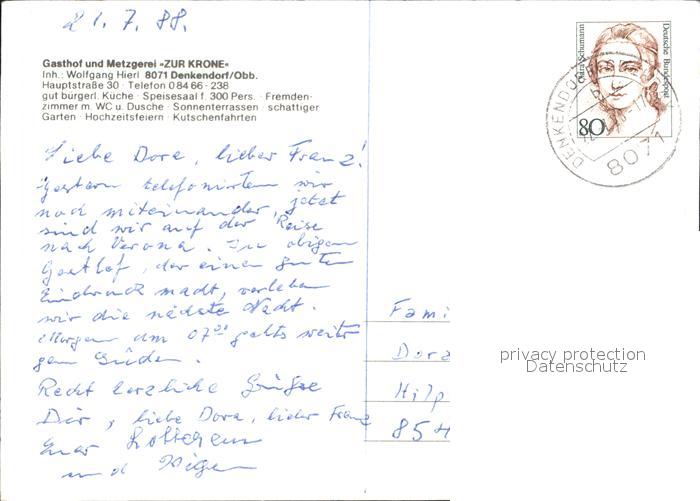 21.7.88.
Gasthof und Metzgerei »ZUR KRONE«
Inh.: Wolfgang Hierl 8071 Denkendorf/Obb.
Hauptstraße 30 · Telefon 0 84 66 - 238
gut bürgerl. Küche · Speisesaal f. 300 Pers. · Fremden-
zimmer m. WC u. Dusche · Sonnenterrassen · schattiger
Garten · Hochzeitsfeiern · Kutschenfahrten
Clara Schumann
Deutsche Bundespost
80
DENKENDORF
8071
Liebe Dora, lieber Franz!
Gestern telefonierten wir
noch miteinander, jetzt
sind wir auf der Reise
nach Verona. Im obigen
Gasthof, der einen guten
Eindruck macht, verleben
wir die nächste Nacht.
Morgen um 07⁰⁰ gehts weiter
gen Süden.
Recht herzliche Grüße
Dir, liebe Dora, lieber Franz
Euer
und
Fami
Dora
Hilp
854
privacy protection
Datenschutz